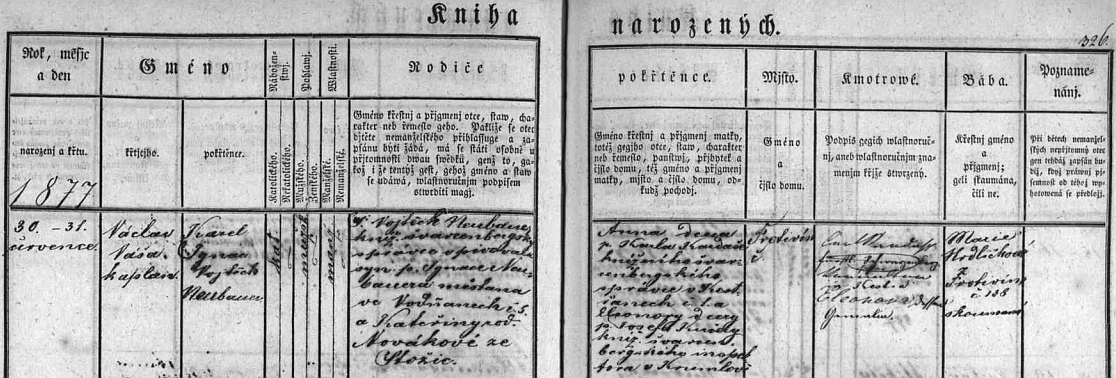 Kniha narozených.
326
Rok, měsjc
a den
narozenj a křtu.
1877
Gméno
křtjcjho.
pokřtěnce.
Nábožen-
stwj.
Katolického.
Nekatolického.
Pohlawj.
Mužského.
Ženského.
Wlastnosti.
Manželské.
Nemanželské.
Rodiče
Gméno křestnj a přjgmenj otce, staw, cha-
rakter neb řemeslo geho. Pakliže se otec
djtěte nemanželského přihlassuge a za-
psánu býti žádá, má se státi osobně u
přjtomnosti dwau swědků, genž to, ga-
kož i že tentýž gest, gehož gméno a staw
se udáwá, wlastnoručnjm podpisem
stwrditi magj.
pokřtěnce.
Gméno křestnj a přjgmenj matky,
totéž gegjho otce, staw, charakter
neb řemeslo, panstwj, přjbytek a
čjslo domu, též gméno a přjgmenj
matky, mjsto a čjslo domu, od-
kudž pocházj.
Mjsto.
Gméno
a
čjslo domu.
Kmotrowé.
Podpis gegich wlastnoruč-
nj, aneb wlastnoručnjm zna-
menjm křjže stwrzený.
Bába.
Křestnj gméno
a
přjgmenj;
geli zkaumána,
čili ne.
Pozname-
nánj.
Při dětech nemanžel-
ských nepřjtomný otec
gen tehdáž zapsán bu-
diž, když práwnj pj-
semnost od téhož wy-
hotowená se předložj.
30. – 31.
července.
Václav
Váša
kaplan.
Karel
Ignac
Vojtěch
Neubauer
kat.
mužské
manž.
P. Vojtěch Neubauer,
knj. švarcenbergský
správce
syn p. Ignace Neu-
bauera měštana
ve Vodňanech č. 5.
a Kateřiny rod.
Novákové ze
Stožic.
Anna dcera
p. Karla Kardaše
knížecího švar-
cenbergského
správce v Kest-
řanech č. 1. a
Eleonory dcery
p. Josefa
knj. švarcen-
bergského inspek-
tora v Krumlově
Protivín
č.
Eleonora
Marie
Hrdličková
Protivín
č. 108
zkoumaná